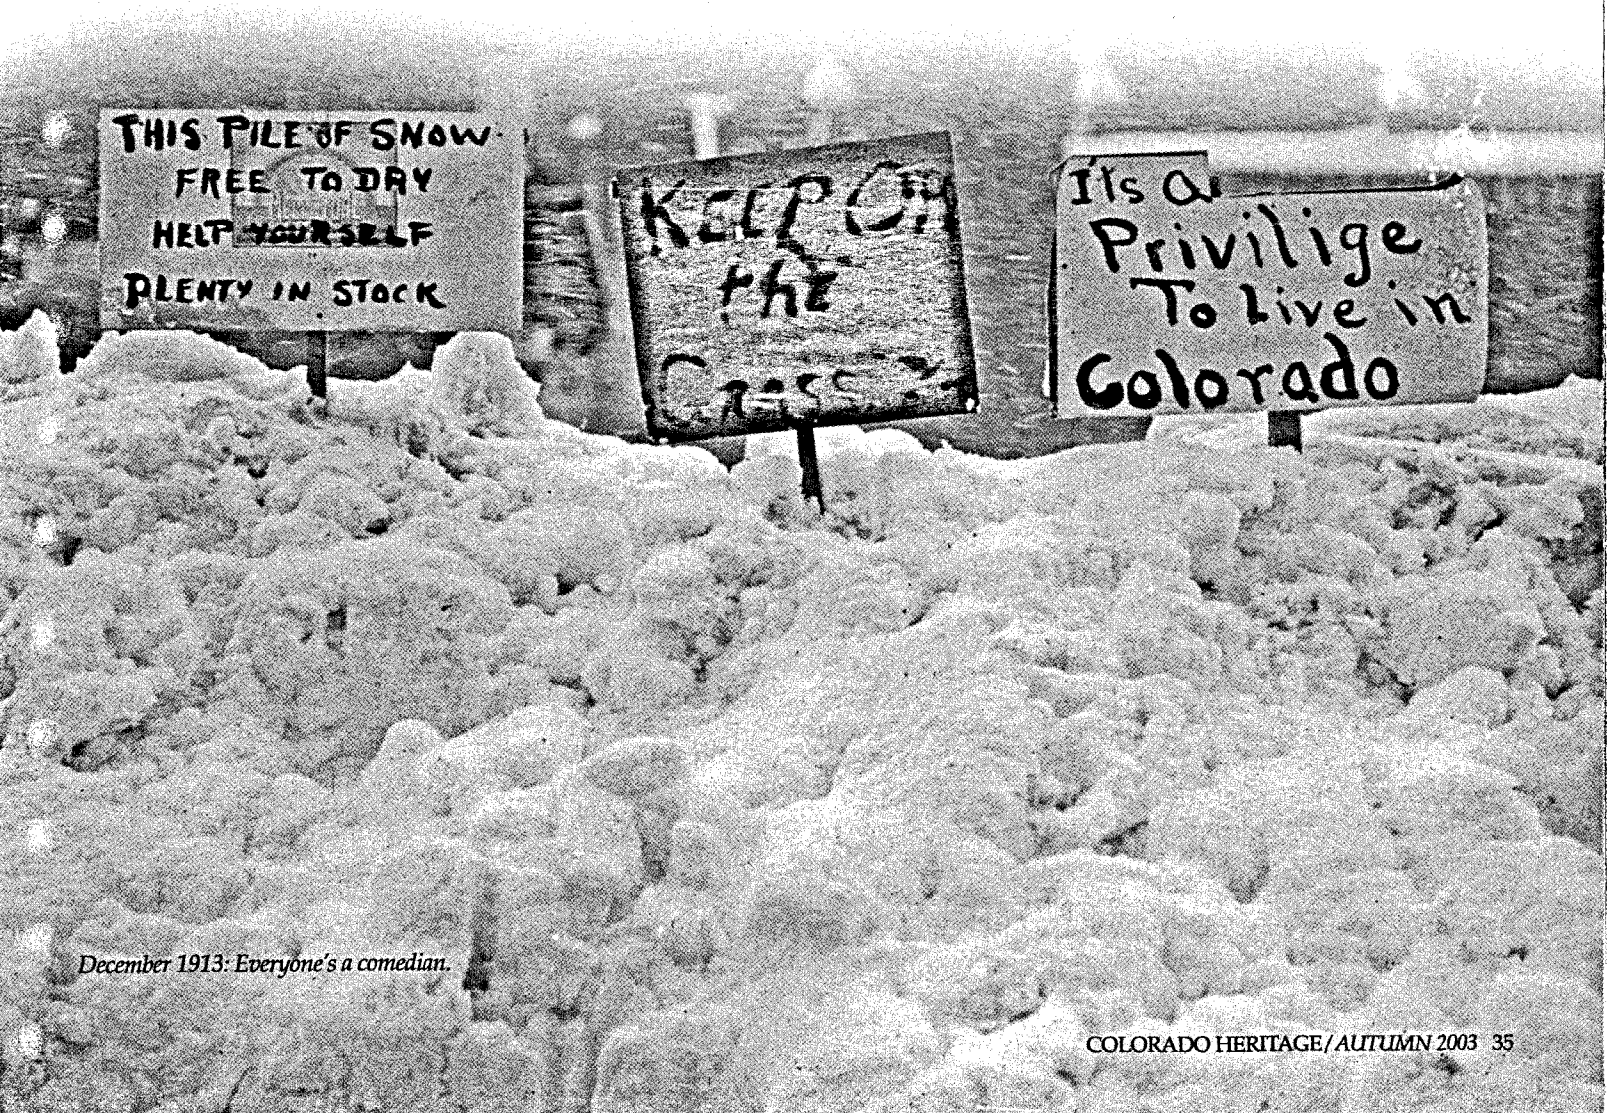 THIS PILE OF SNOW
FREE TODAY
HELP YOURSELF
PLENTY IN STOCK
KEEP Off
the
Grass
It's a
Privilige
To Live in
Colorado
December 1913: Everyone's a comedian.
COLORADO HERITAGE/AUTUMN 2003 35